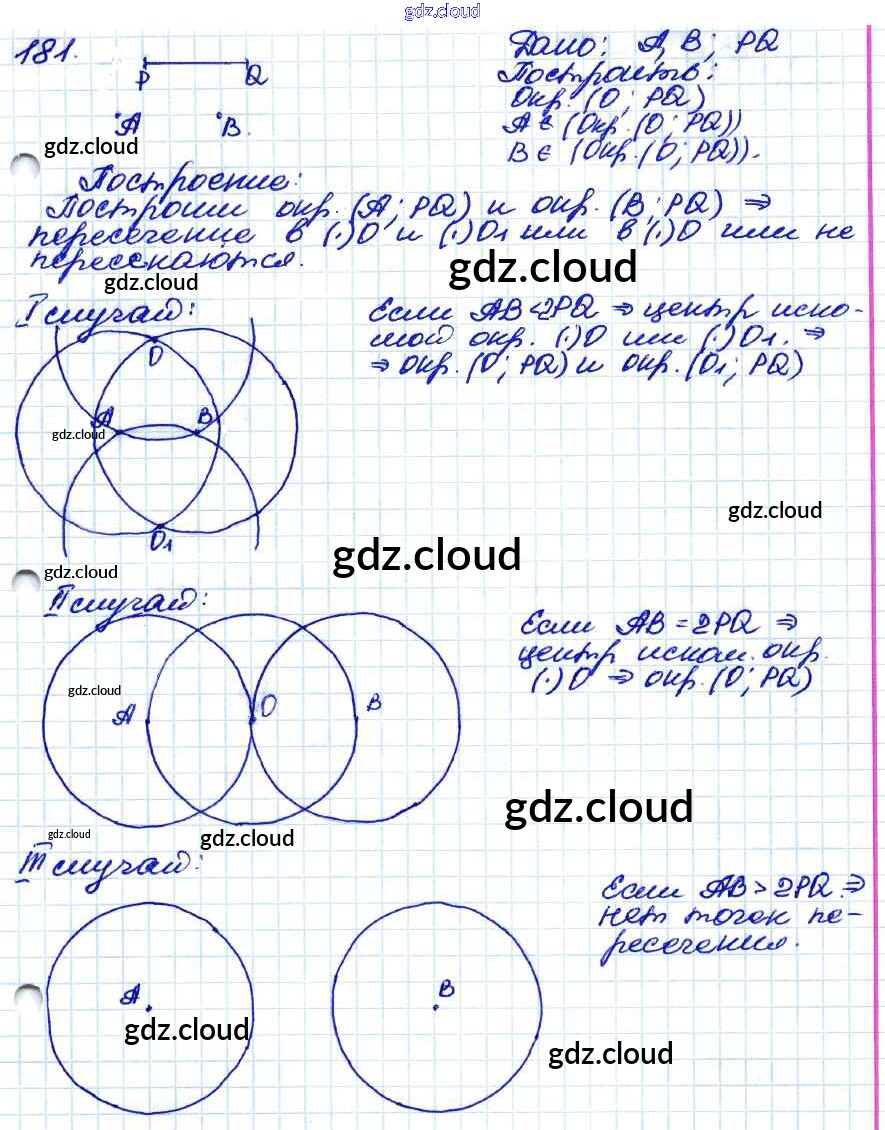 gdz.cloud
181.
P Q
A B.
gdz.cloud
Дано: A, B; PQ
Построить:
Окр. (O; PQ)
A ∈ (Окр. (O; PQ))
B ∈ (Окр. (O; PQ)).
Построение:
Построим окр. (A; PQ) и окр. (B; PQ) ⇒
пересечение в (·)O и (·)O1 или в (·)O или не
пересекаются.
gdz.cloud
gdz.cloud
I случай:
Если AB < 2PQ ⇒ центр иско-
мой окр. (·)O или (·)O1. ⇒
⇒ окр. (O; PQ) и окр. (O1; PQ)
O
A B
gdz.cloud
O1
gdz.cloud
gdz.cloud
gdz.cloud
II случай:
Если AB = 2PQ ⇒
центр иском. окр.
(·)O ⇒ окр. (O; PQ)
gdz.cloud
A O B
gdz.cloud
gdz.cloud
gdz.cloud
III случай:
Если AB > 2PQ ⇒
нет точек пе-
ресечения.
A B
gdz.cloud
gdz.cloud